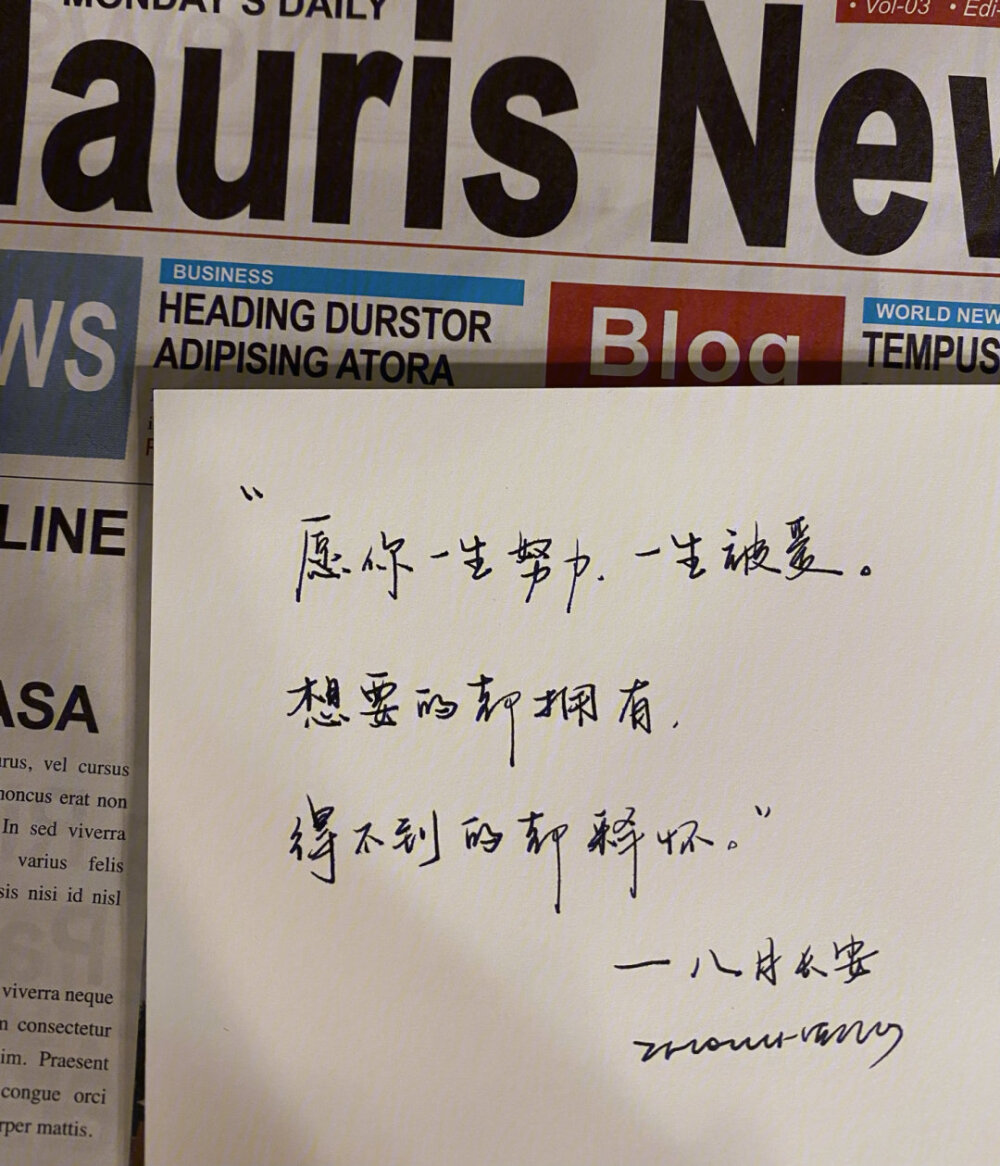 MONDAY'S DAILY
• Vol-03 • Edi-
lauris New
BUSINESS
HEADING DURSTOR
ADIPISING ATORA
WS
Blog
WORLD NEW
TEMPUS
LINE
ASA
urus, vel cursus
honcus erat non
In sed viverra
varius felis
sis nisi id nisl
viverra neque
m consectetur
im. Praesent
congue orci
rper mattis.
“愿你一生努力，一生被爱。
想要的都拥有，
得不到的都释怀。”
—八月长安